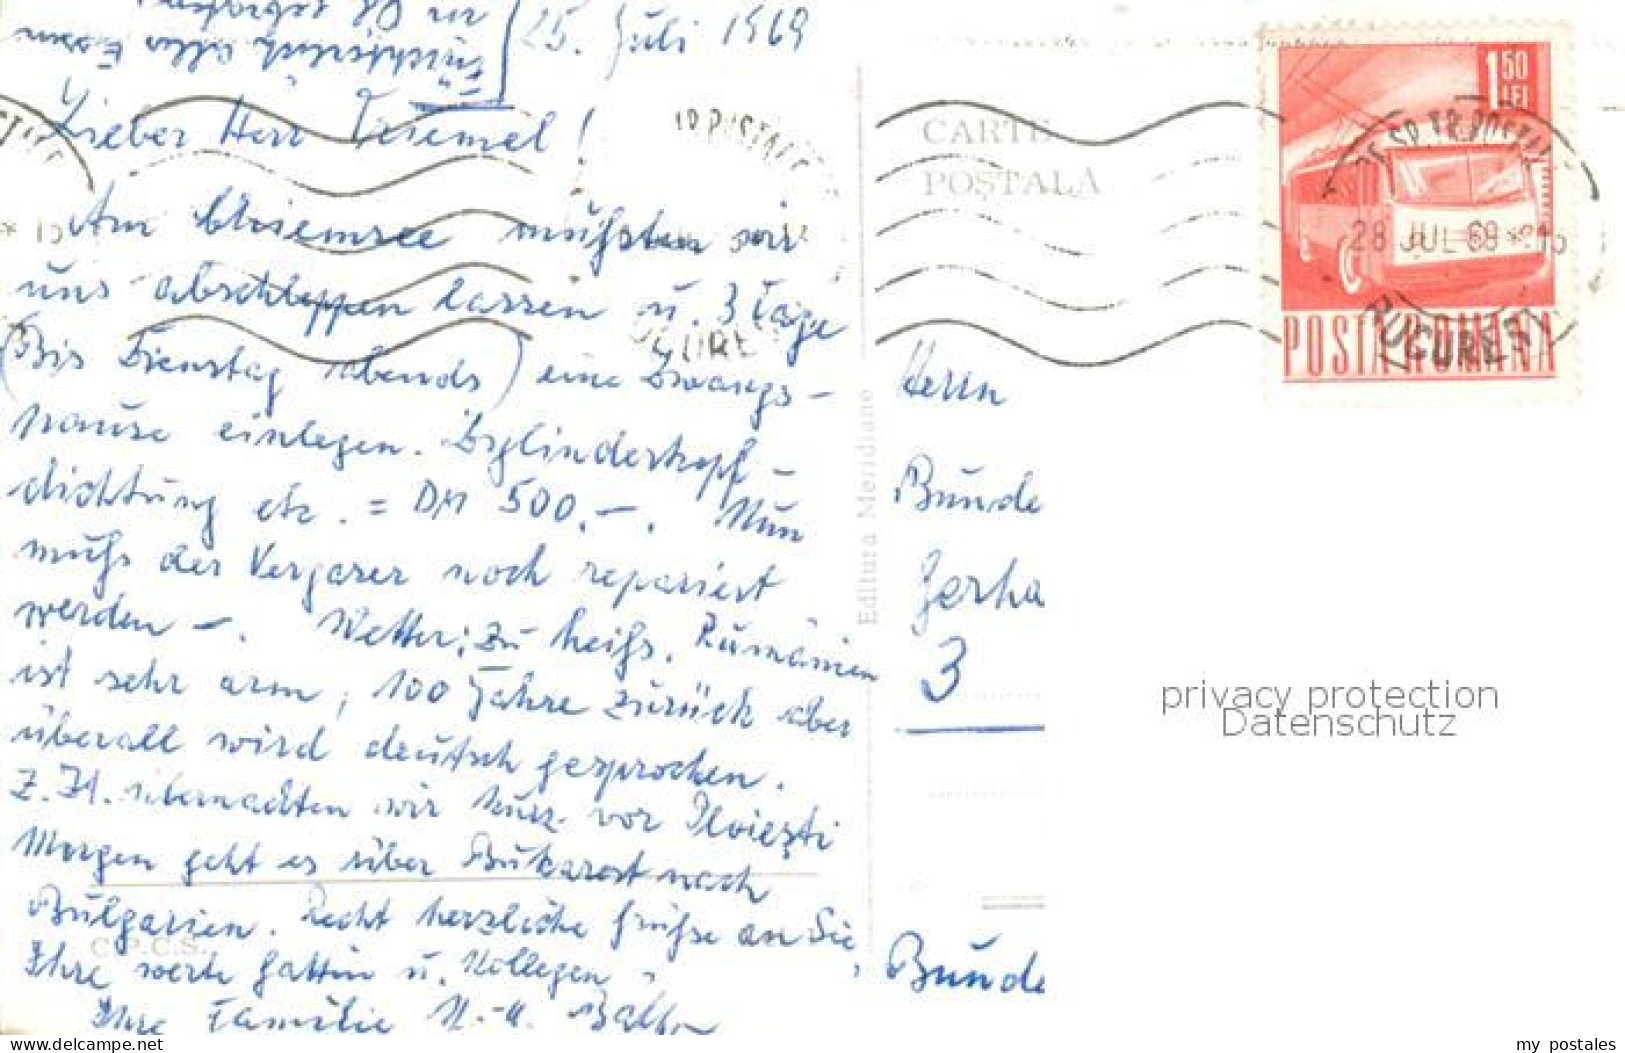 25. Juli 1969
Lieber Herr
Am Chiemsee mußten wir
uns abschleppen lassen u. 3 Tage
(Bis Dienstag abends) eine Zwangs-
pause einlegen. Zylinderkopf-
dichtung etc. = DM 500.-. Nun
muß der Vergaser noch repariert
werden -. Wetter: zu heiß. Rumänien
ist sehr arm, 100 Jahre zurück aber
überall wird deutsch gesprochen.
Z. Zt. übernachten wir kurz vor Ploiești
Morgen geht es über Bukarest nach
Bulgarien. Recht herzliche Grüße an Sie,
Ihre werte Gattin u. Kollegen,
Ihre Familie
C.P.C.S.
Editura Meridiane
CARTE
POȘTALĂ
1 50
LEI
28 JUL 69
BUCUREȘTI
POSTA ROMANA
Herrn
Bunde
Gerha
3
Bunde
privacy protection
Datenschutz
delcampe.net
my_postales